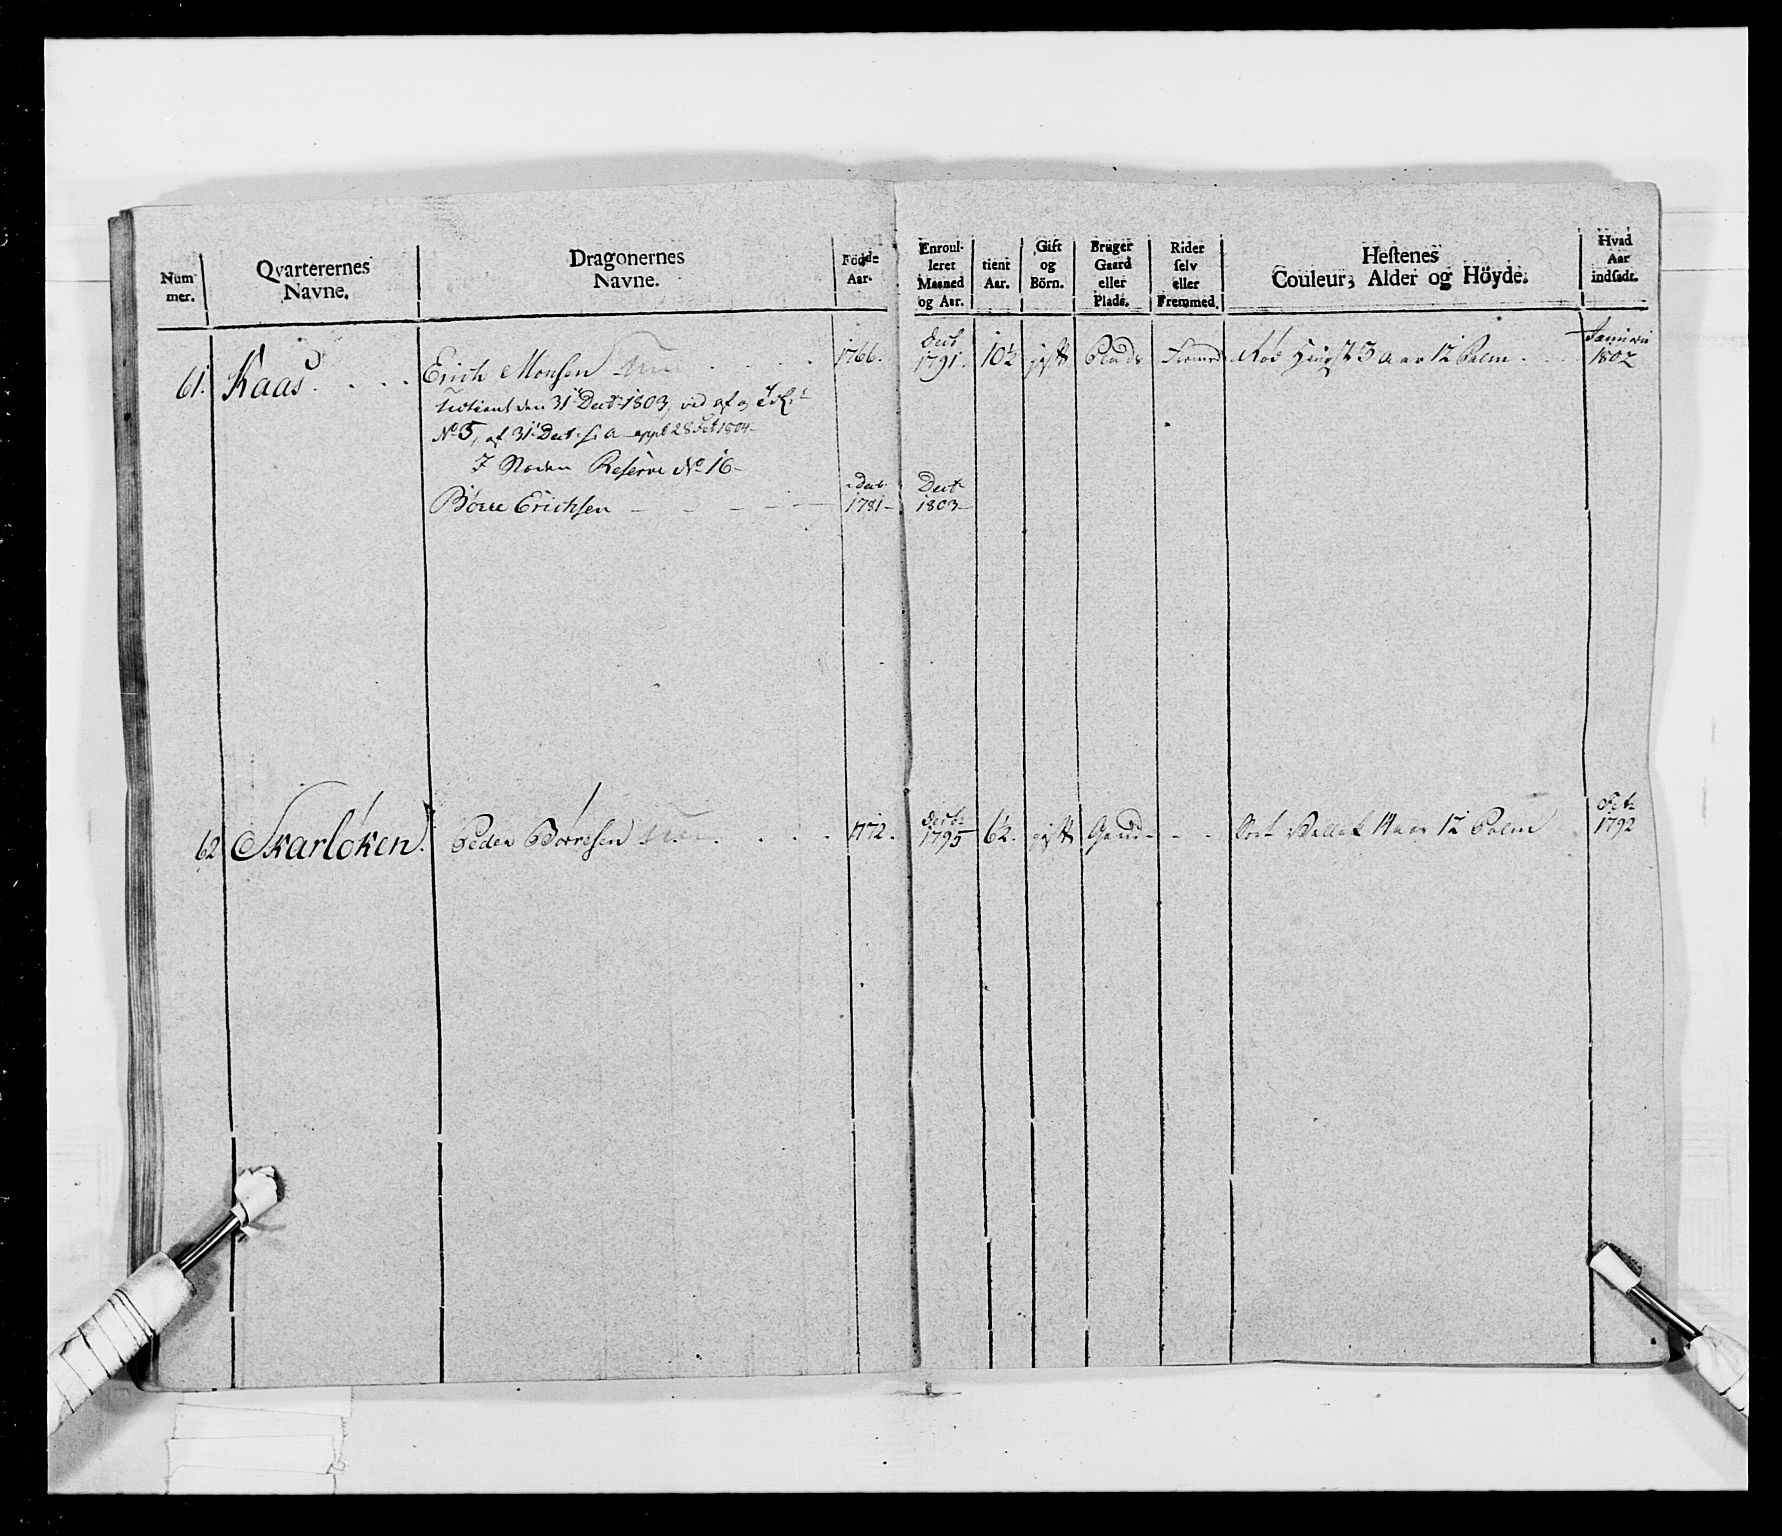 Num mer.
Qvarterernes Navne.
Dragonernes Navne.
Födde Aar.
Enroulleret Maaned og Aar.
tient Aar.
Gift og Börn.
Bruger Gaard eller Plads.
Rider selv eller Fremmed.
Hestenes Couleur, Alder og Höyde.
Hvad Aar indsadt.
61. Kaas . . . . Erich Monsen . . . 1766. Decb 1791. 10½ gift Plads Fremed Rød Hingst 3 Aar 12 Palm . . Januarii 1802
den 31 Decbr 1803, ved
No 5, af 31 Decbr s. a. 28 Feb 1804
I Steden Reserve No 16
Børre Erichsen — — — — Decb 1781 — Decbr 1803
62 Skarløken. Peder Børresen . . . . 1772. Decbr 1795 6½. gift Gaard - - - Sort Vallak 14 Aar 12 Palm Feb 1792